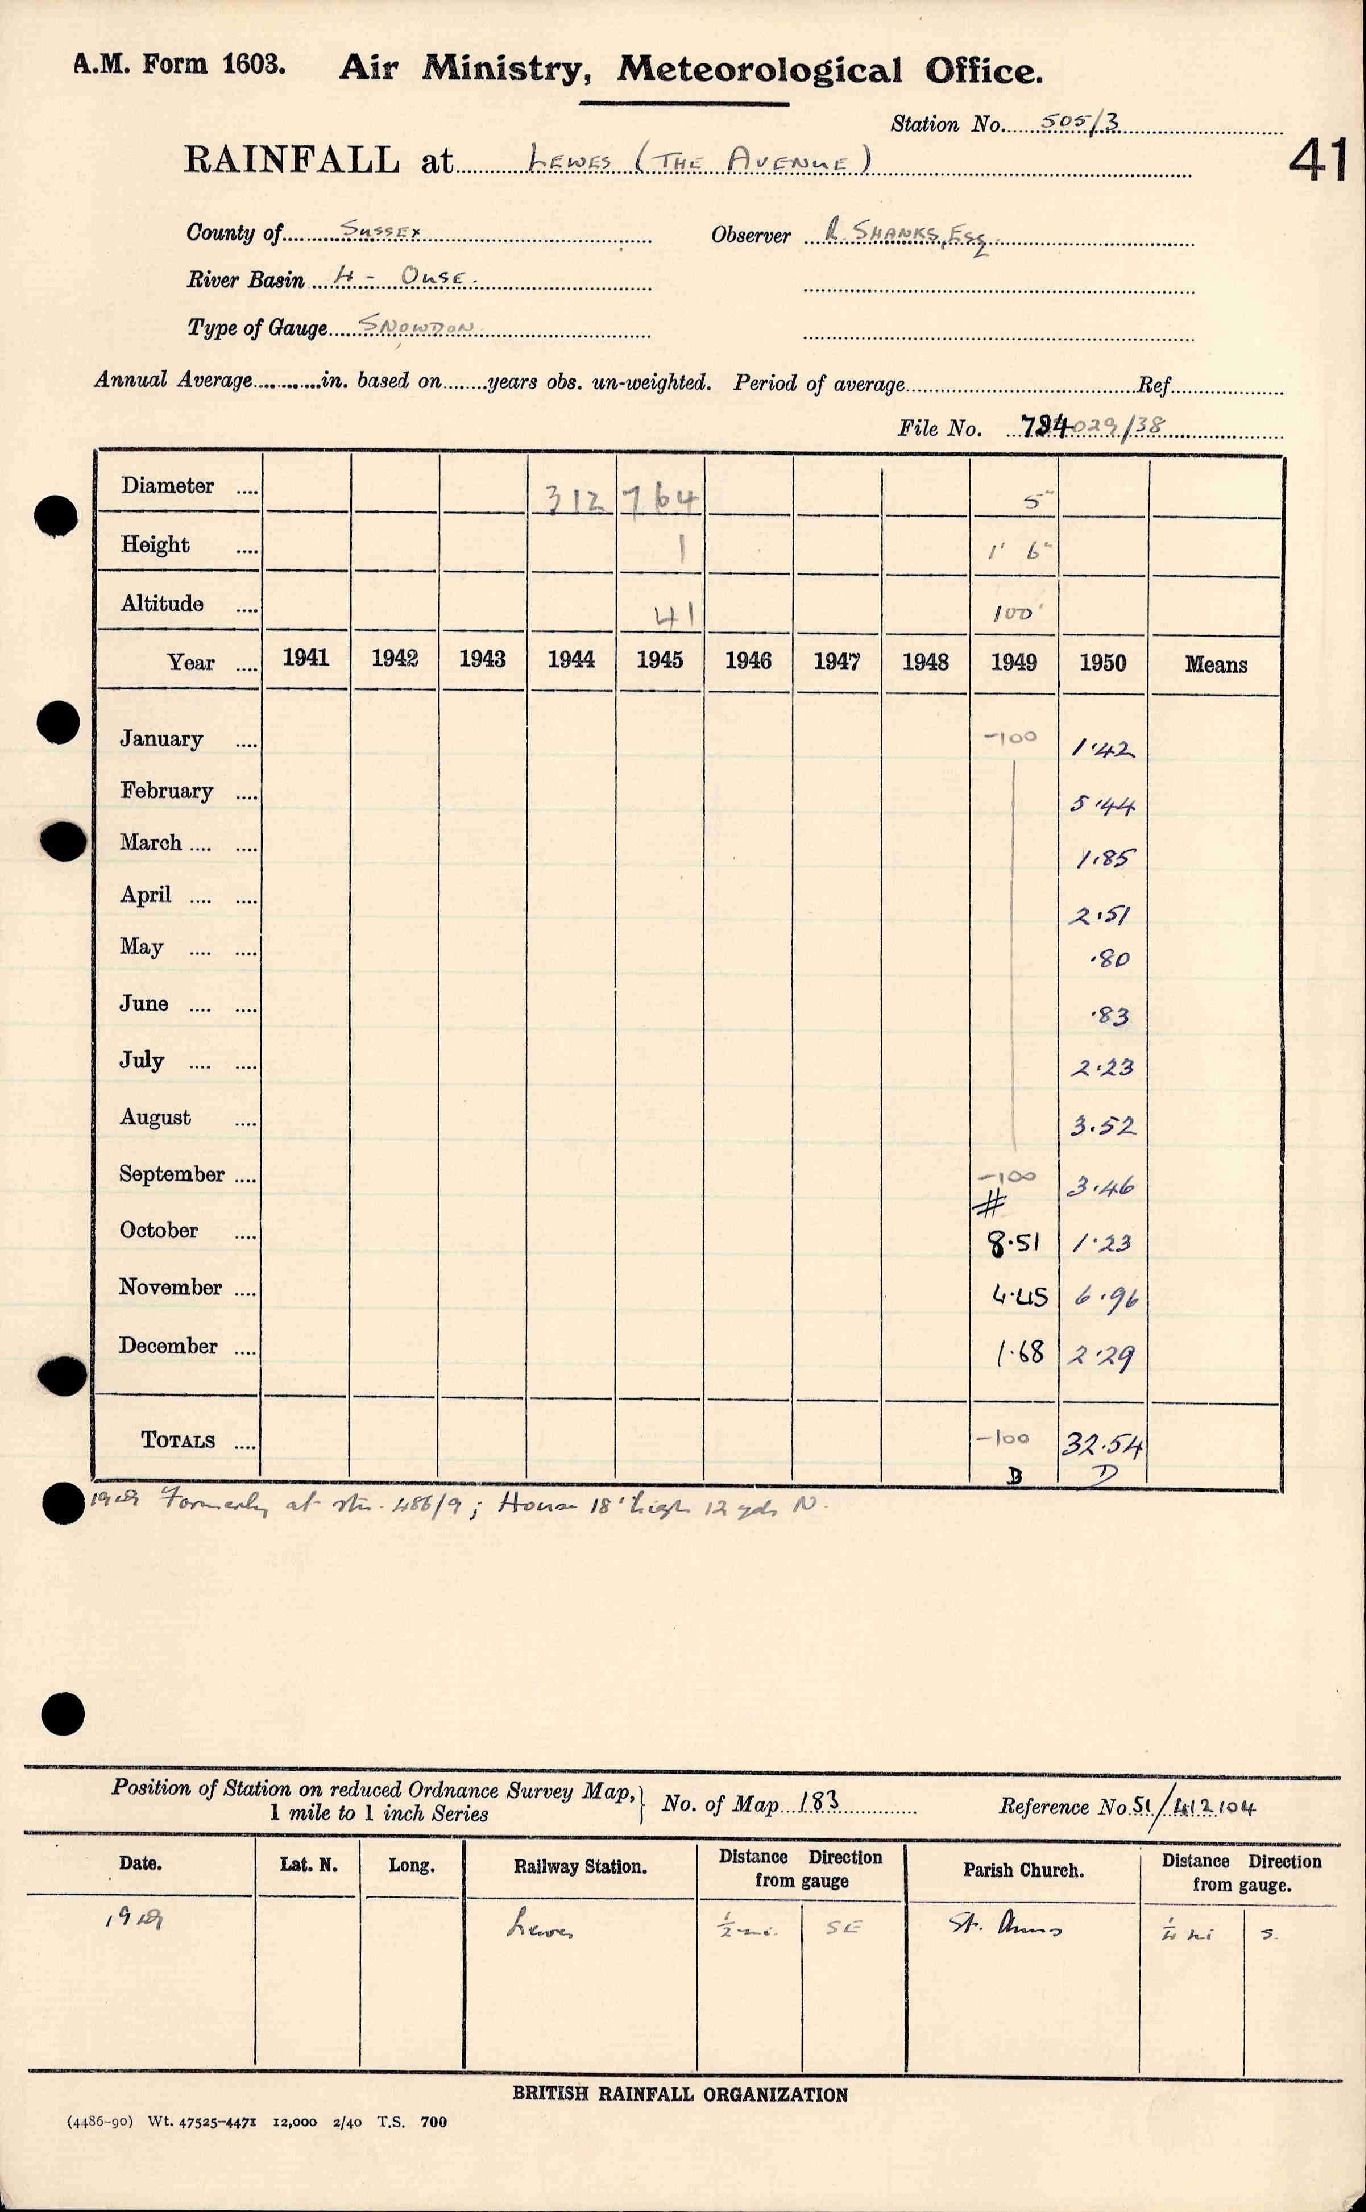 A.M. Form 1603. Air Ministry, Meteorological Office.
Station No. 505/3
41
RAINFALL at LEWES (THE AVENUE)
County of SUSSEX Observer R SHANKS, ESQ
River Basin 4 - OUSE.
Type of Gauge SNOWDON
Annual Average............in. based on........years obs. un-weighted. Period of average Ref.
File No. 794029/38
Diameter .... 312 764 5"
Height .... 1 1' 6"
Altitude .... 41 100'
Year .... 1941 1942 1943 1944 1945 1946 1947 1948 1949 1950 Means
January .... -100 1.42
February .... 5.44
March .... .... 1.85
April .... .... 2.51
May .... .... .80
June .... .... .83
July .... .... 2.23
August .... 3.52
September .... -100 3.46
#
October .... 8.51 1.23
November .... 4.45 6.96
December .... 1.68 2.29
TOTALS .... -100 32.54
B D
1949 Formerly at stn. 486/9; House 18' high 12 yds N.
Position of Station on reduced Ordnance Survey Map, } No. of Map 183 Reference No. 51/412104
1 mile to 1 inch Series
Date. Lat. N. Long. Railway Station. Distance Direction from gauge Parish Church. Distance Direction from gauge.
1949 Lewes ½ mi. SE St. Anns ¼ mi S.
BRITISH RAINFALL ORGANIZATION
(4486-90) Wt. 47525-4471 12,000 2/40 T.S. 700